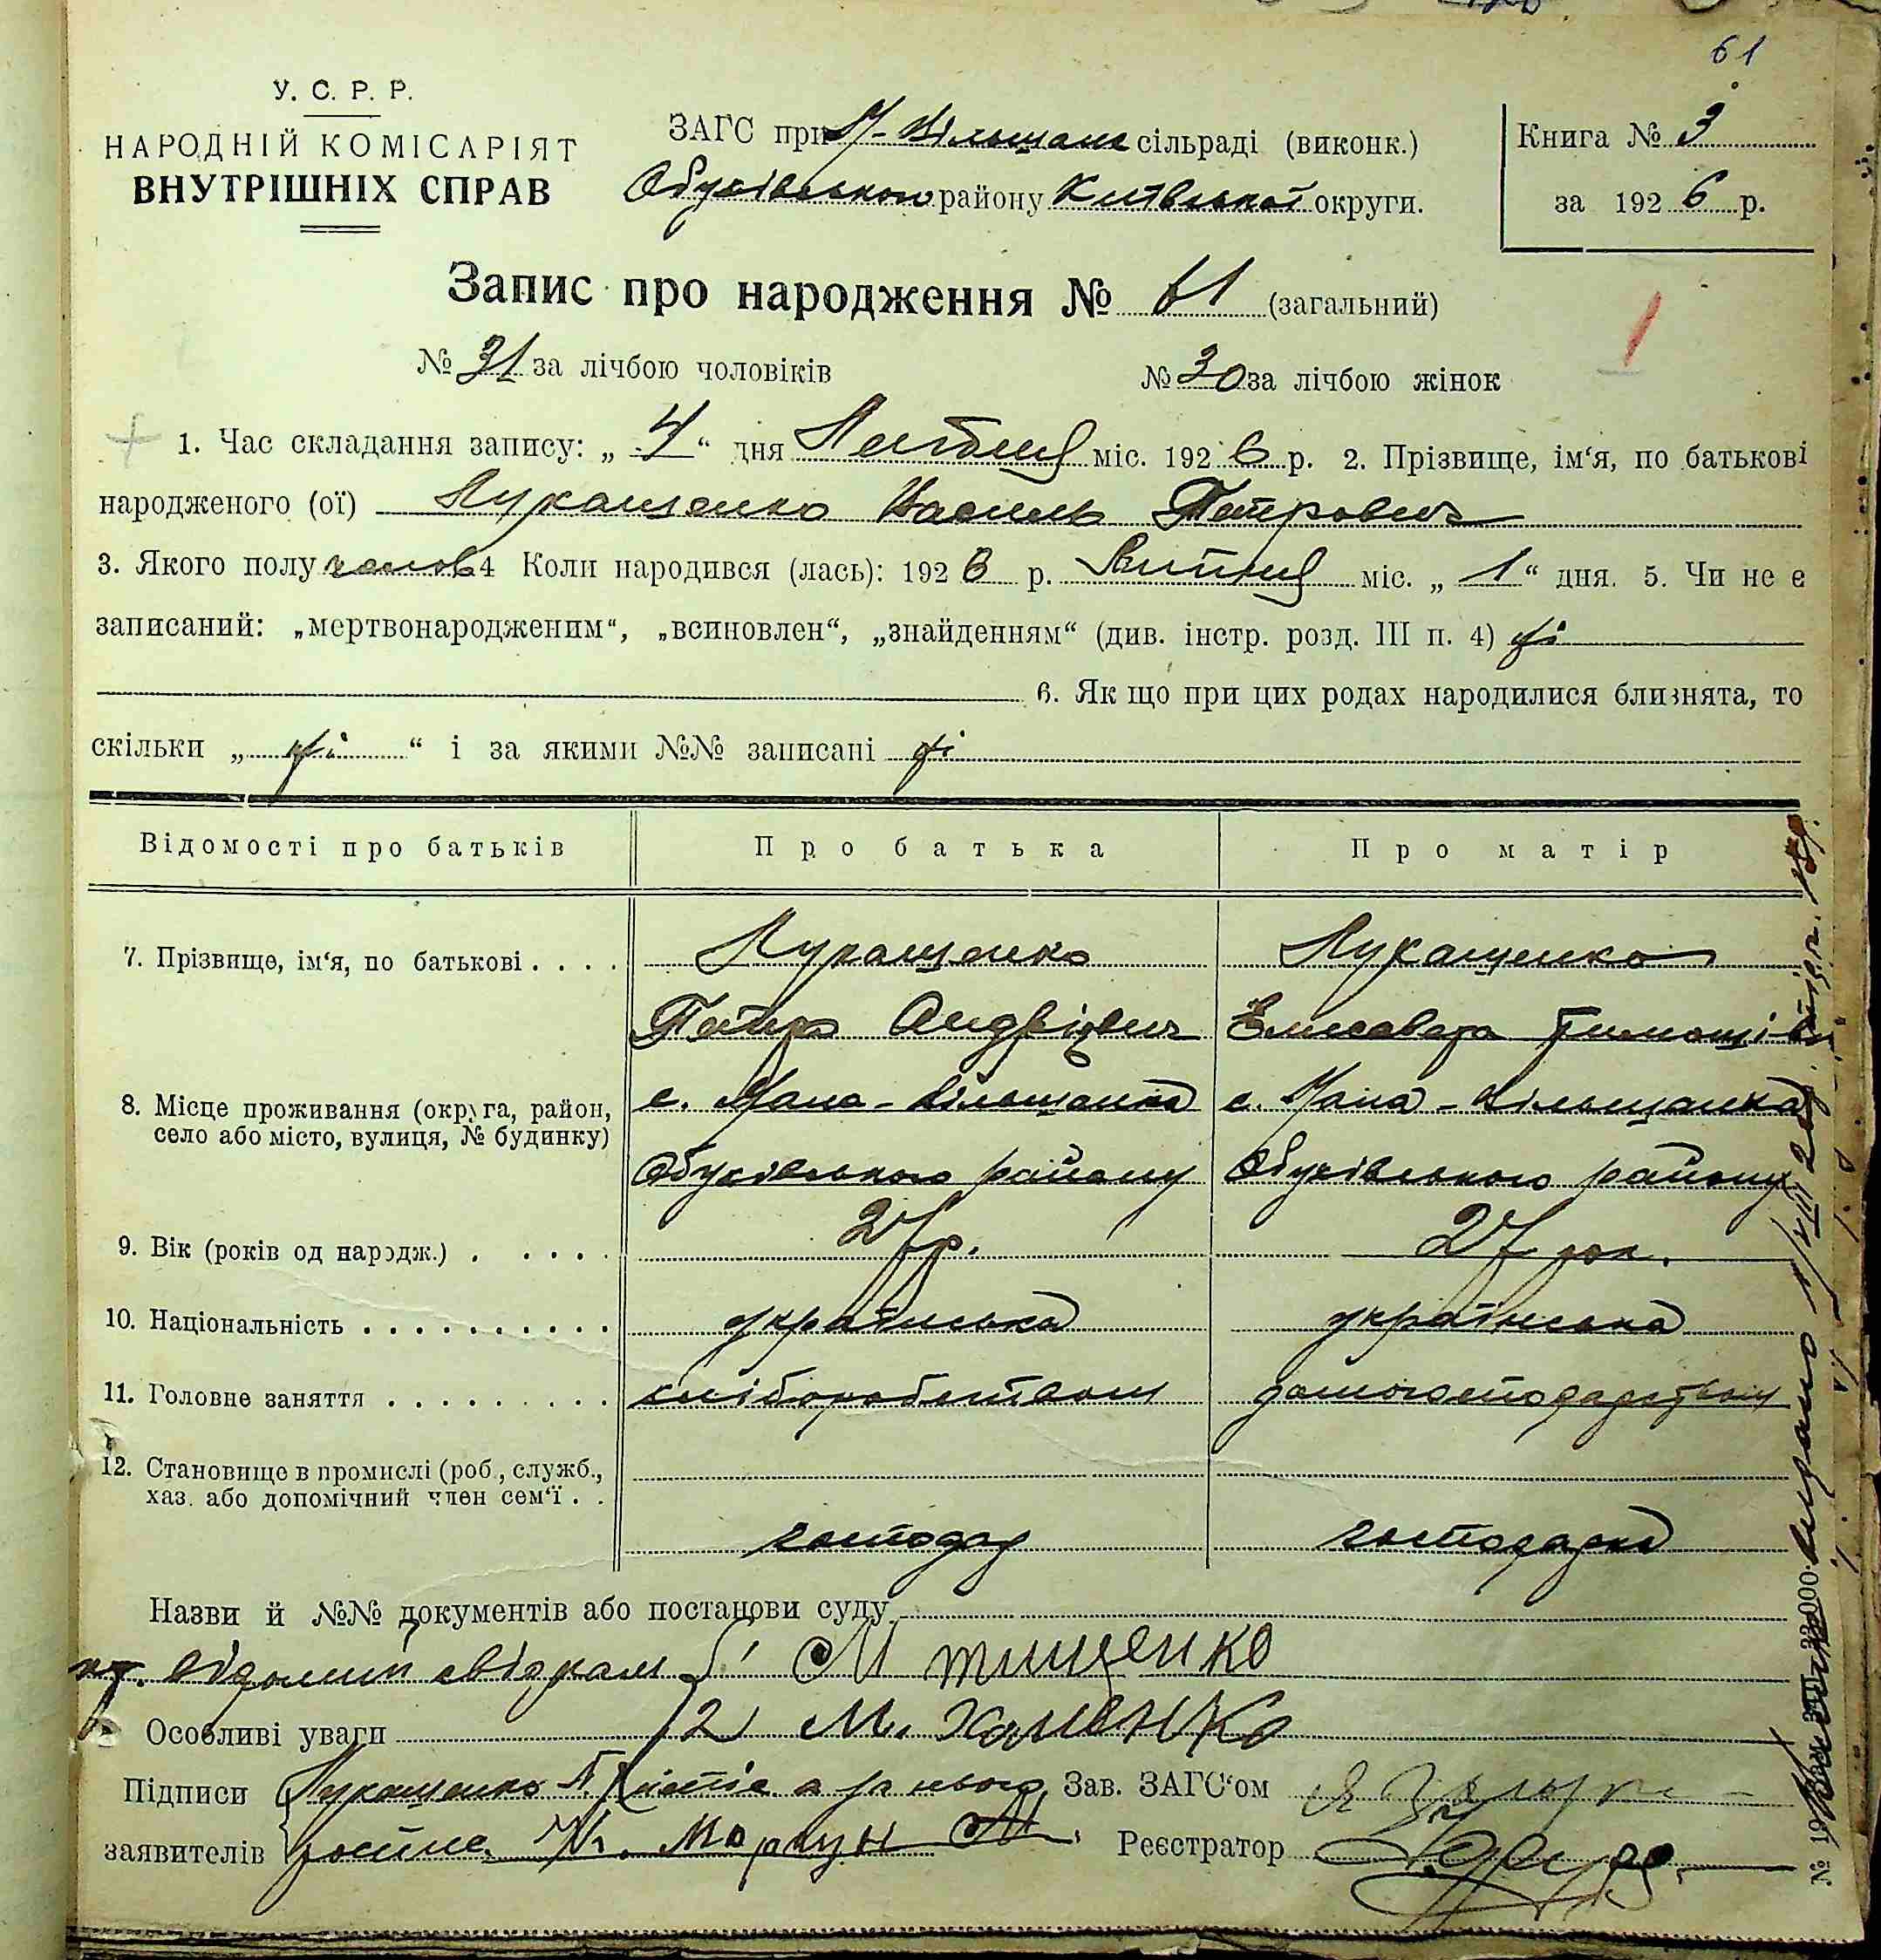 61
У. С. Р. Р.
НАРОДНІЙ КОМІСАРІЯТ
ВНУТРІШНІХ СПРАВ
ЗАГС при М-Вільшан сільраді (виконк.)
Обухівського району Київської округи.
Книга № 3
за 1926 р.
Запис про народження № 61 (загальний)
№ 31 за лічбою чоловіків № 30 за лічбою жінок
1. Час складання запису: „ 4 “ дня міс. 1926 р. 2. Прізвище, ім‘я, по батькові
народженого (ої) Лукашенко Василь Петрович
3. Якого полу чолов 4 Коли народився (лась): 1926 р. Липня міс. „ 1 “ дня. 5. Чи не є
записаний: „мертвонародженим“, „всиновлен“, „знайденням“ (див. інстр. розд. III п. 4) ні
6. Як що при цих родах народилися близнята, то
скільки „ ні “ і за якими №№ записані ні
Відомості про батьків Про батька Про матір
7. Прізвище, ім‘я, по батькові . . . . Лукашенко Лукашенко
Петро Андрієвич Єлисавета
8. Місце проживання (округа, район, с. Мала-Вільшанка с. Мала-Вільшанка
село або місто, вулиця, № будинку) Обухівського району Обухівського району
9. Вік (років од народж.) . . . . . 27 р. 27 рок.
10. Національність . . . . . . . . . . українська українська
11. Головне заняття . . . . . . . . . хліборобством домогосподарством
12. Становище в промислі (роб., служб.,
хаз. або допомічний член сем‘ї . . господар господарка
Назви й №№ документів або постанови суду
відомий свідкам М Тищенко
Особливі уваги 2) М. Хоменко
Підписи Лукашенко П. а за нього Зав. ЗАГС‘ом
заявителів Реєстратор